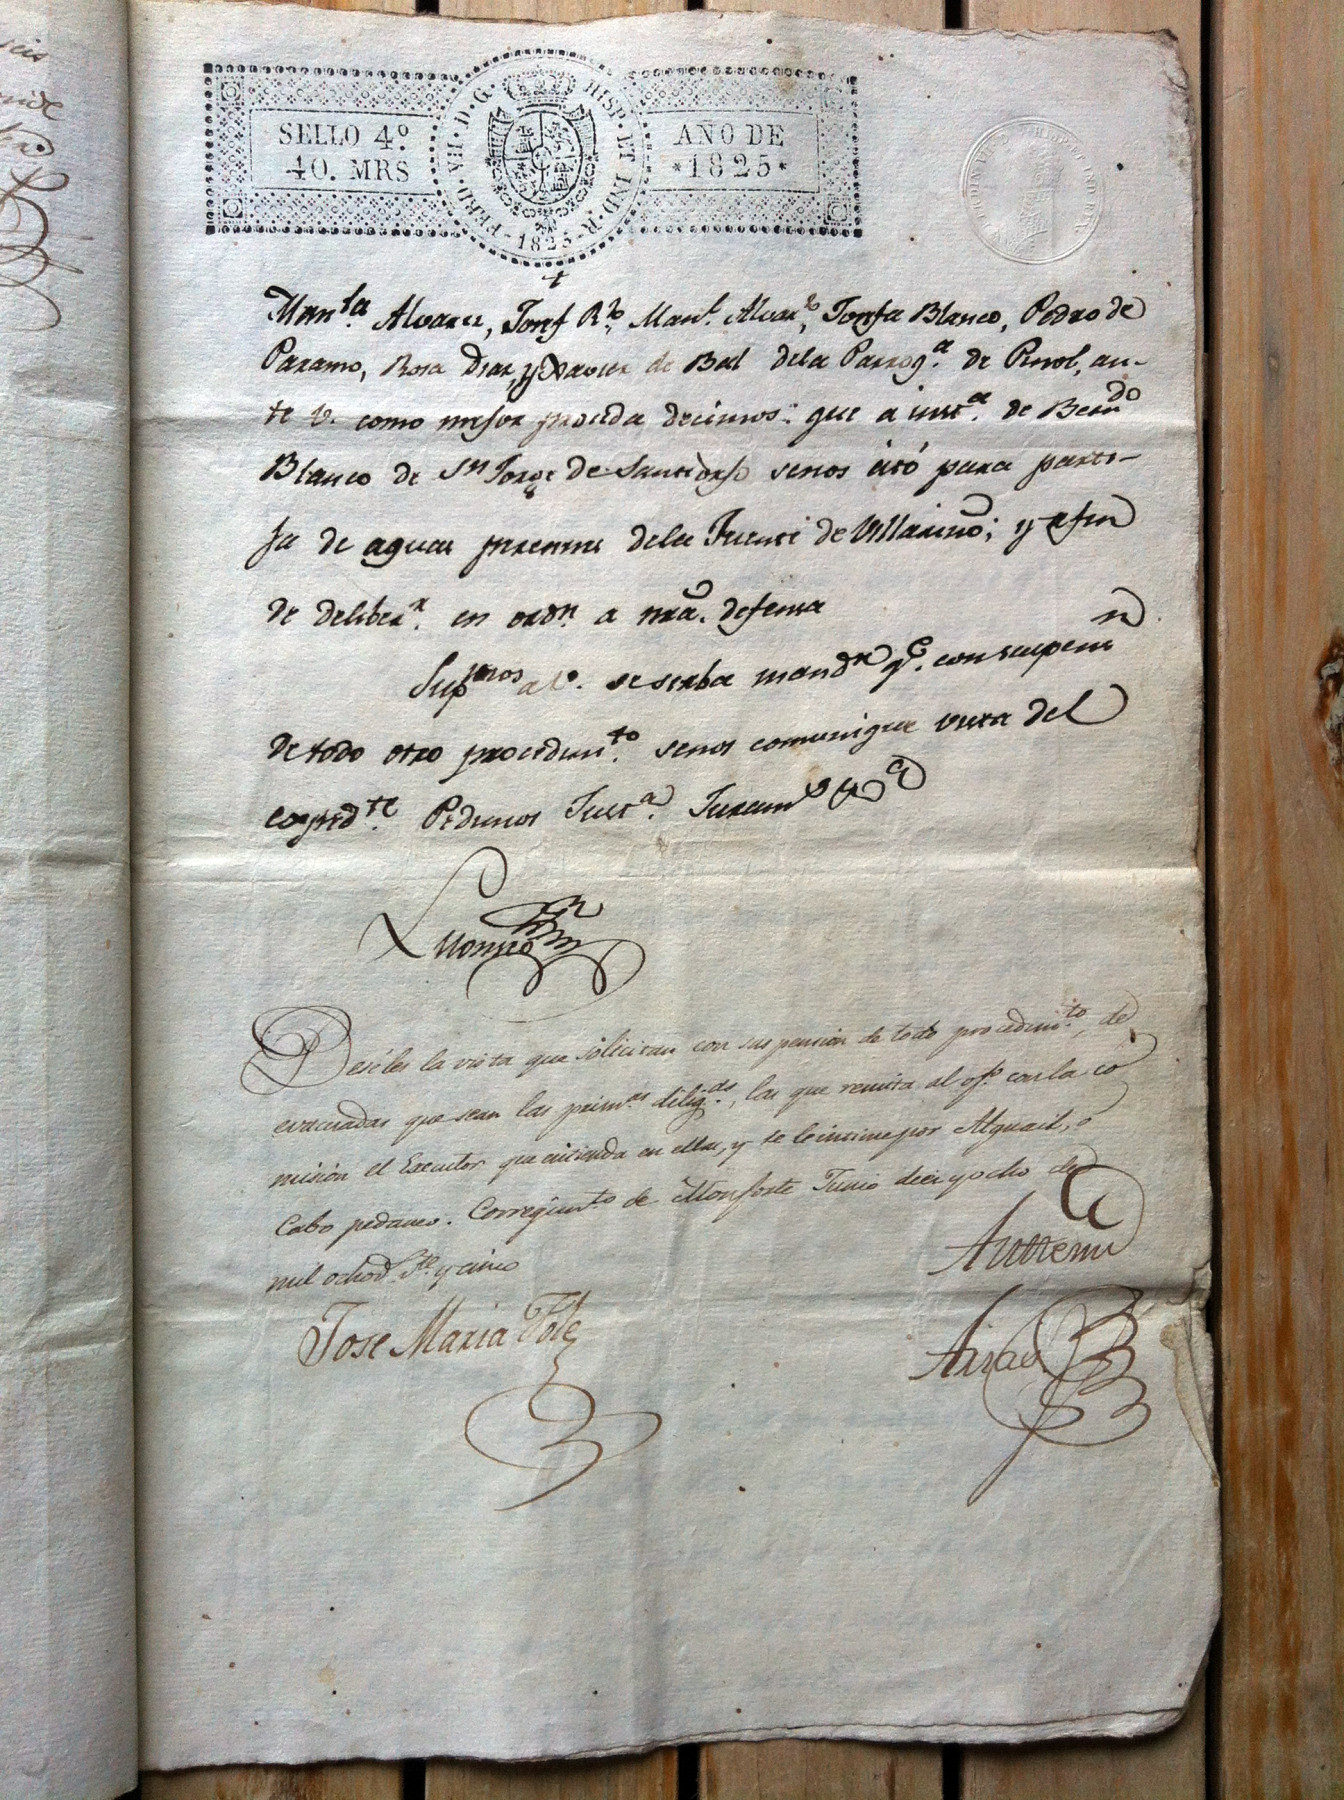 SELLO 4º
40. MRS
FERD. VII. D. G. HISP. ET IND. R.
1825
AÑO DE
*1825*
Manˡᵃ. Alvarez, Josef Rº. Manˡ. Alvarº, Josefa Blanco, Pedro de
Paramo, Rosa Diaz, y Xavier de Bal dela Parroqª. de Pinol, an-
te V. como mejor proceda decimos: que a instª. de Bernᵈº
Blanco de Sⁿ Jorge de Santiorjo senos citó para parti-
ja de aguas dela Fuente de Villarino; y afin
de deliberʳ. en ordⁿ. a nrâ. defensa
Supᵐᵒˢ a V. se serba mandʳ qᵉ. con suspenⁿ
de todo otro procedimᵗº. senos comunique vista del
expedᵗᵉ. Pedimos Justª. Juramº
Deseles la vista que solicitan con suspension de todo procedimᵗº, de
evacuadas que sean las primᵃˢ diligᵃˢ, las que remita al ofº. con la co
mision el Executor que entienda en ellas, y se le intime por Alguacil, o
Cabo pedaneo. Corregimᵗº de Monforte Junio diez y ocho de
mil ochocᵗ. Vᵗᵉ. y cinco
Antemi
Jose Maria